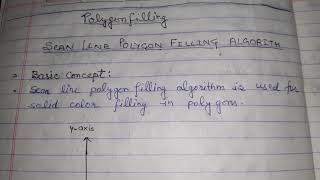 Polygonfilling
SCAN LINE POLYGON FILLING ALGORITH
Basic concept:
Scan line polygon filling algorithm is used for
solid color filling in polygons.
y-axis